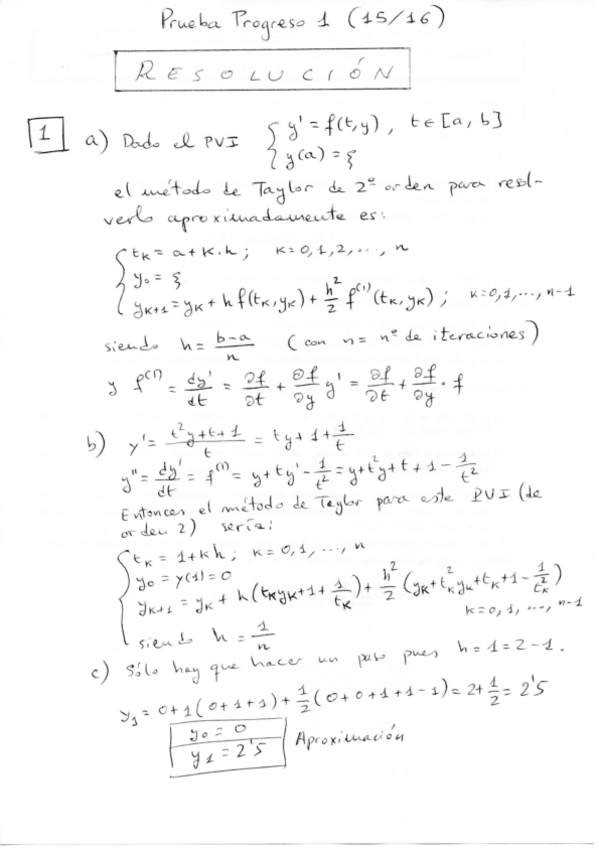 Prueba Progreso 1 (15/16)
RESOLUCIÓN
1 a) Dado el PVI { y' = f(t,y), t∈[a, b]
y(a) = ξ
el método de Taylor de 2º orden para resol-
verlo aproximadamente es:
{ t_K = a + K·h; K=0,1,2,..., n
y_0 = ξ
y_{K+1} = y_K + h f(t_K,y_K) + h²/2 f^{(1)}(t_K,y_K); K=0,1,..., n-1
siendo h = (b-a)/n (con n = nº de iteraciones)
y f^{(1)} = dy'/dt = ∂f/∂t + ∂f/∂y y' = ∂f/∂t + ∂f/∂y · f
b) y' = (t²y+t+1)/t = ty + 1 + 1/t
y'' = dy'/dt = f^{(1)} = y + ty' - 1/t² = y + t²y + t + 1 - 1/t²
Entonces el método de Taylor para este PVI (de
orden 2) sería:
{ t_K = 1 + kh; K=0,1,..., n
y_0 = y(1) = 0
y_{K+1} = y_K + h(t_K y_K + 1 + 1/t_K) + h²/2 (y_K + t_K² y_K + t_K + 1 - 1/t_K²)
K=0,1,..., n-1
siendo h = 1/n
c) Sólo hay que hacer un paso pues h = 1 = 2-1.
y_1 = 0+1(0+1+1) + 1/2(0+0+1+1-1) = 2+1/2 = 2'5
y_0 = 0
y_1 = 2'5 Aproximación